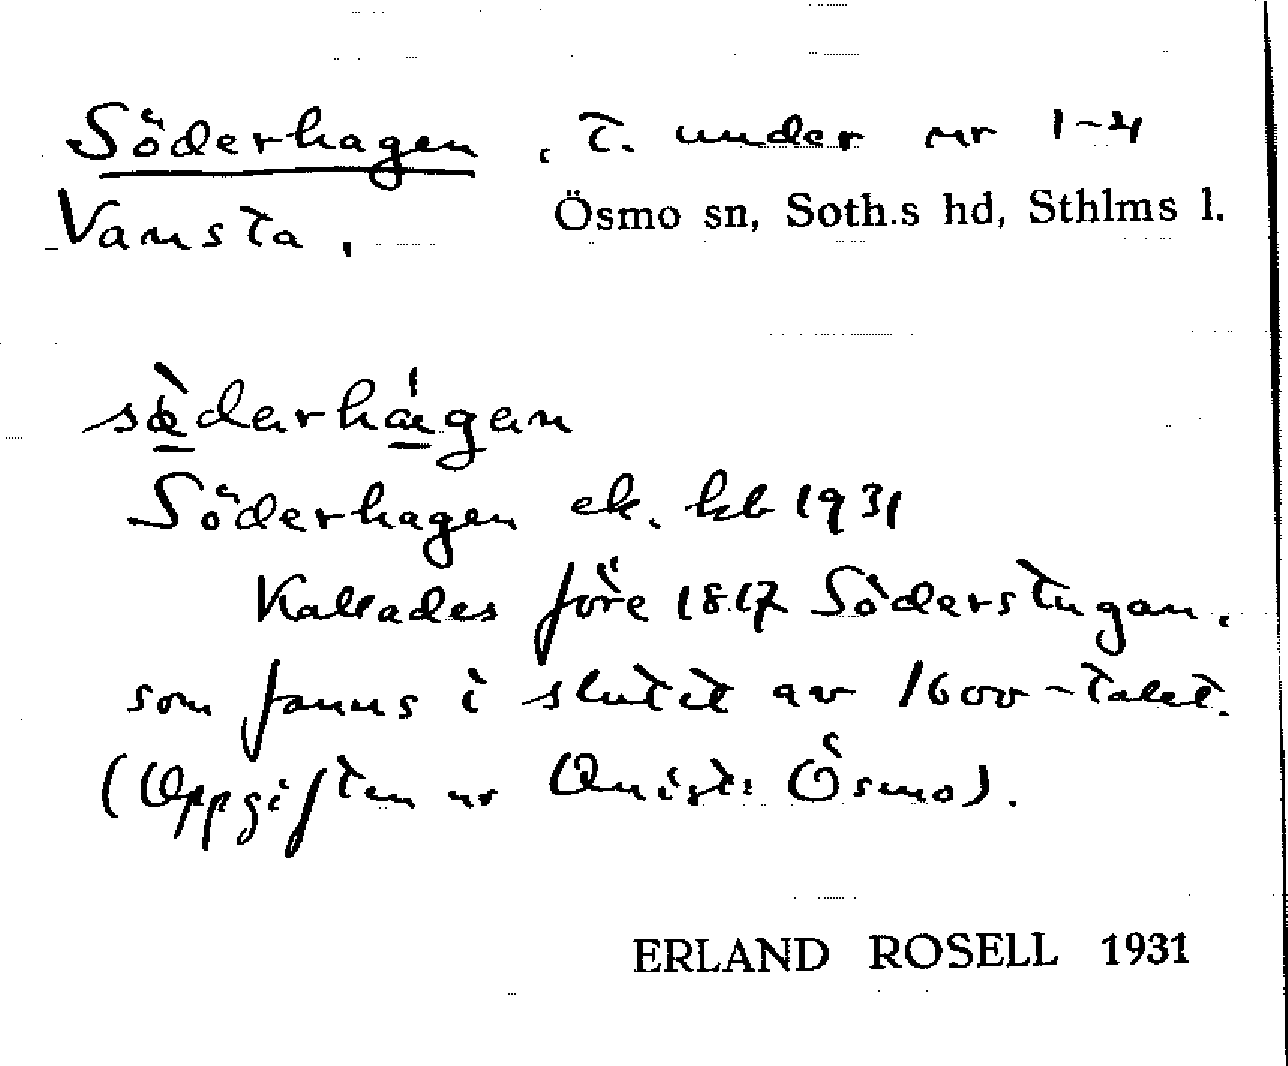 Söderhagen, t. under nr 1-4
Vansta, Ösmo sn, Soth.s hd, Sthlms l.
Söderhagen ek. kb 1931
Kallades före 1817 Söderstugan,
som fanns i slutet av 1600-talet.
(Uppgiften ur Quist: Ösmo).
ERLAND ROSELL 1931